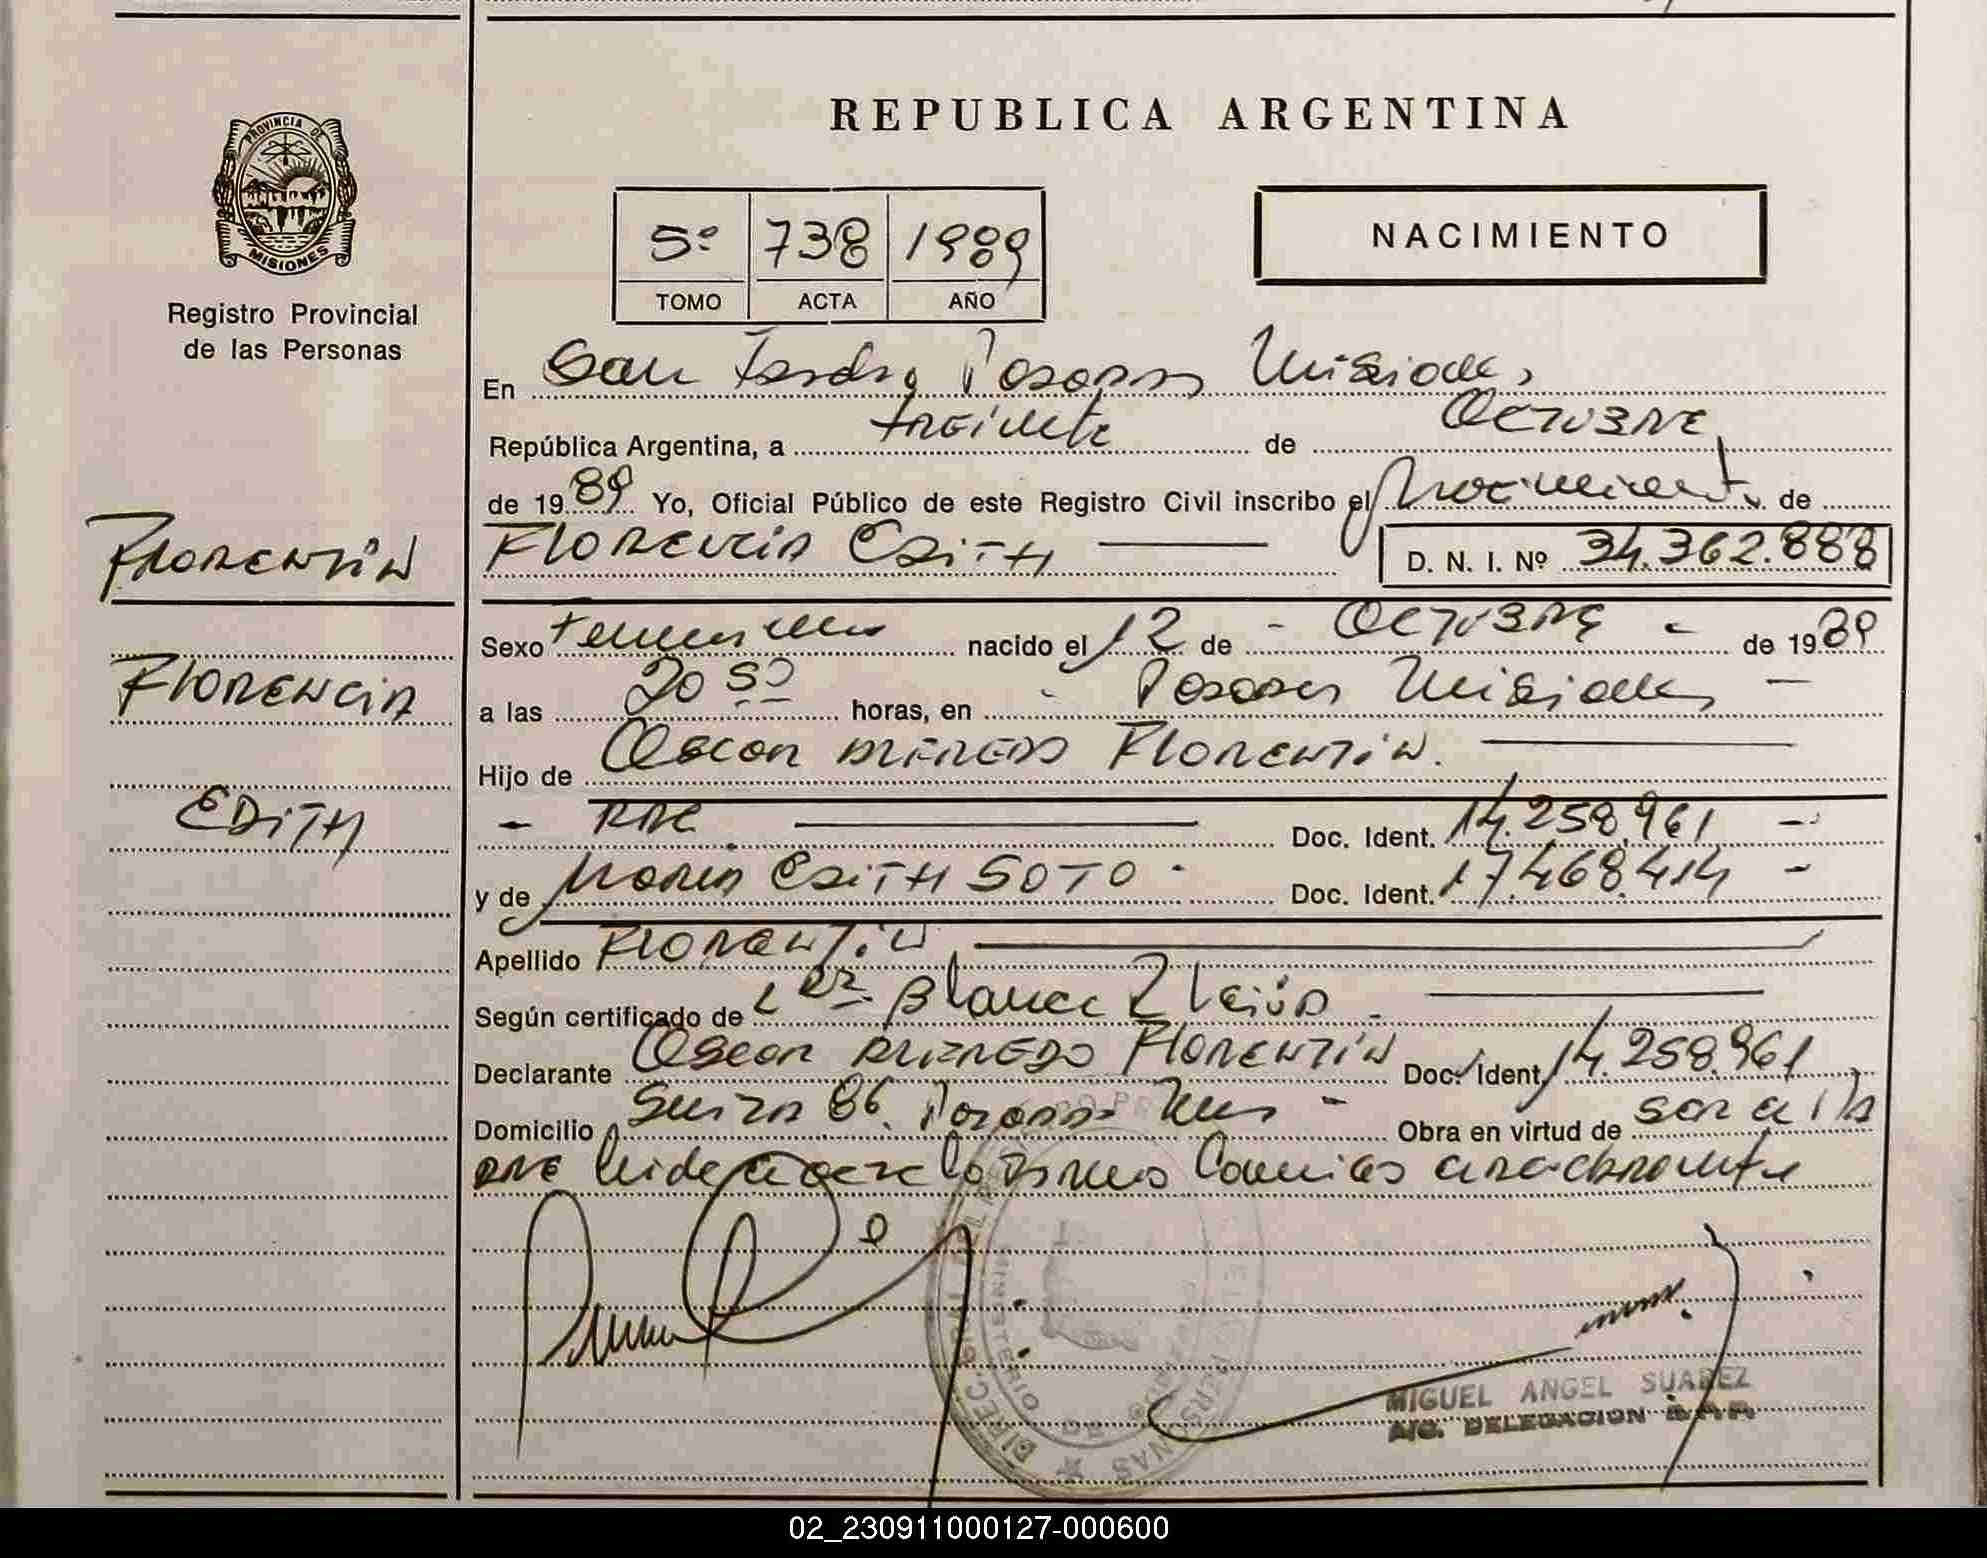 PROVINCIA DE
MISIONES
Registro Provincial
de las Personas
FLORENTIN
FLORENCIA
EDITH
REPUBLICA ARGENTINA
5º 738 1989
TOMO ACTA AÑO
NACIMIENTO
En San Isidro Posadas Misiones,
República Argentina, a treinta de OCTUBRE,
de 1989 Yo, Oficial Público de este Registro Civil inscribo el Nacimiento de
FLORENCIA EDITH — D. N. I. Nº 34.362.888
Sexo Femenino nacido el 12 de - OCTUBRE - de 1989
a las 20 50 horas, en - Posadas Misiones —
Hijo de OSCAR ALFREDO FLORENTIN. —
- ARG — Doc. Ident. 14.258.961 -
y de MARIA EDITH SOTO - Doc. Ident. 17.468.414 -
Apellido FLORENTIN —
Según certificado de Blanca —
Declarante OSCAR ALFREDO FLORENTIN Doc. Ident. 14.258.961
Domicilio Suiza 86. Posadas Mnes - Obra en virtud de ser el
Leída el acta la firman Conmigo
MINISTERIO DE
MIGUEL ANGEL SUAREZ
A/C. DELEGACION
02_230911000127-000600